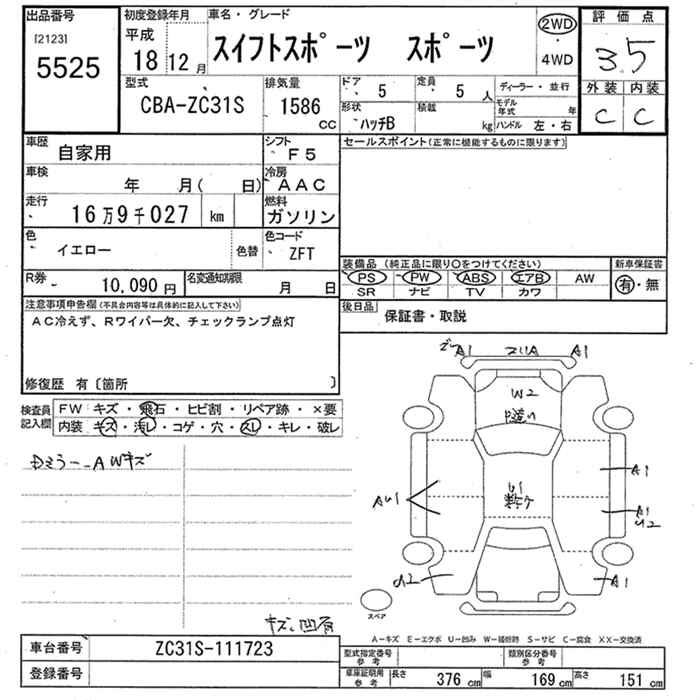 出品番号 初度登録年月 車名・グレード 2WD 評価点
[2123] 平成
5525 18 12月 スイフトスポーツ スポーツ ・4WD 3.5
型式 排気量 ドア 5 定員 5人 ディーラー・並行 外装 内装
CBA-ZC31S 1586 CC 形状 ハッチB 積載 kg モデル年式 年 C C
ハンドル 左・右
車歴 自家用 シフト F5 セールスポイント(正常に機能するものに限ります)
車検 年 月( 日) 冷房 AAC
走行 16万9千027 km 燃料 ガソリン
色 イエロー 色替 色コード ZFT
装備品(純正品に限り○をつけてください) 新車保証書
R券 10,090円 名変通知期限 月 日 PS PW ABS エアB AW 有・無
SR ナビ TV カワ
注意事項申告欄(不具合内容等は具体的に記入して下さい) 後日品 保証書・取説
AC冷えず、Rワイパー欠、チェックランプ点灯
修復歴 有〔箇所 〕
検査員記入欄 FW キズ・飛石・ヒビ割・リペア跡・×要
内装 キズ・汚レ・コゲ・穴・スレ・キレ・破レ
A1 A1
W2
U1
A1
AU1
A1
U2
A1
スペア
A-キズ E-エクボ U-凹み W-補修跡 S-サビ C-腐食 XX-交換済
車台番号 ZC31S-111723 型式指定番号 参考 類別区分番号 参考
登録番号 車庫証明用 参考 長さ 376cm 幅 169cm 高さ 151cm